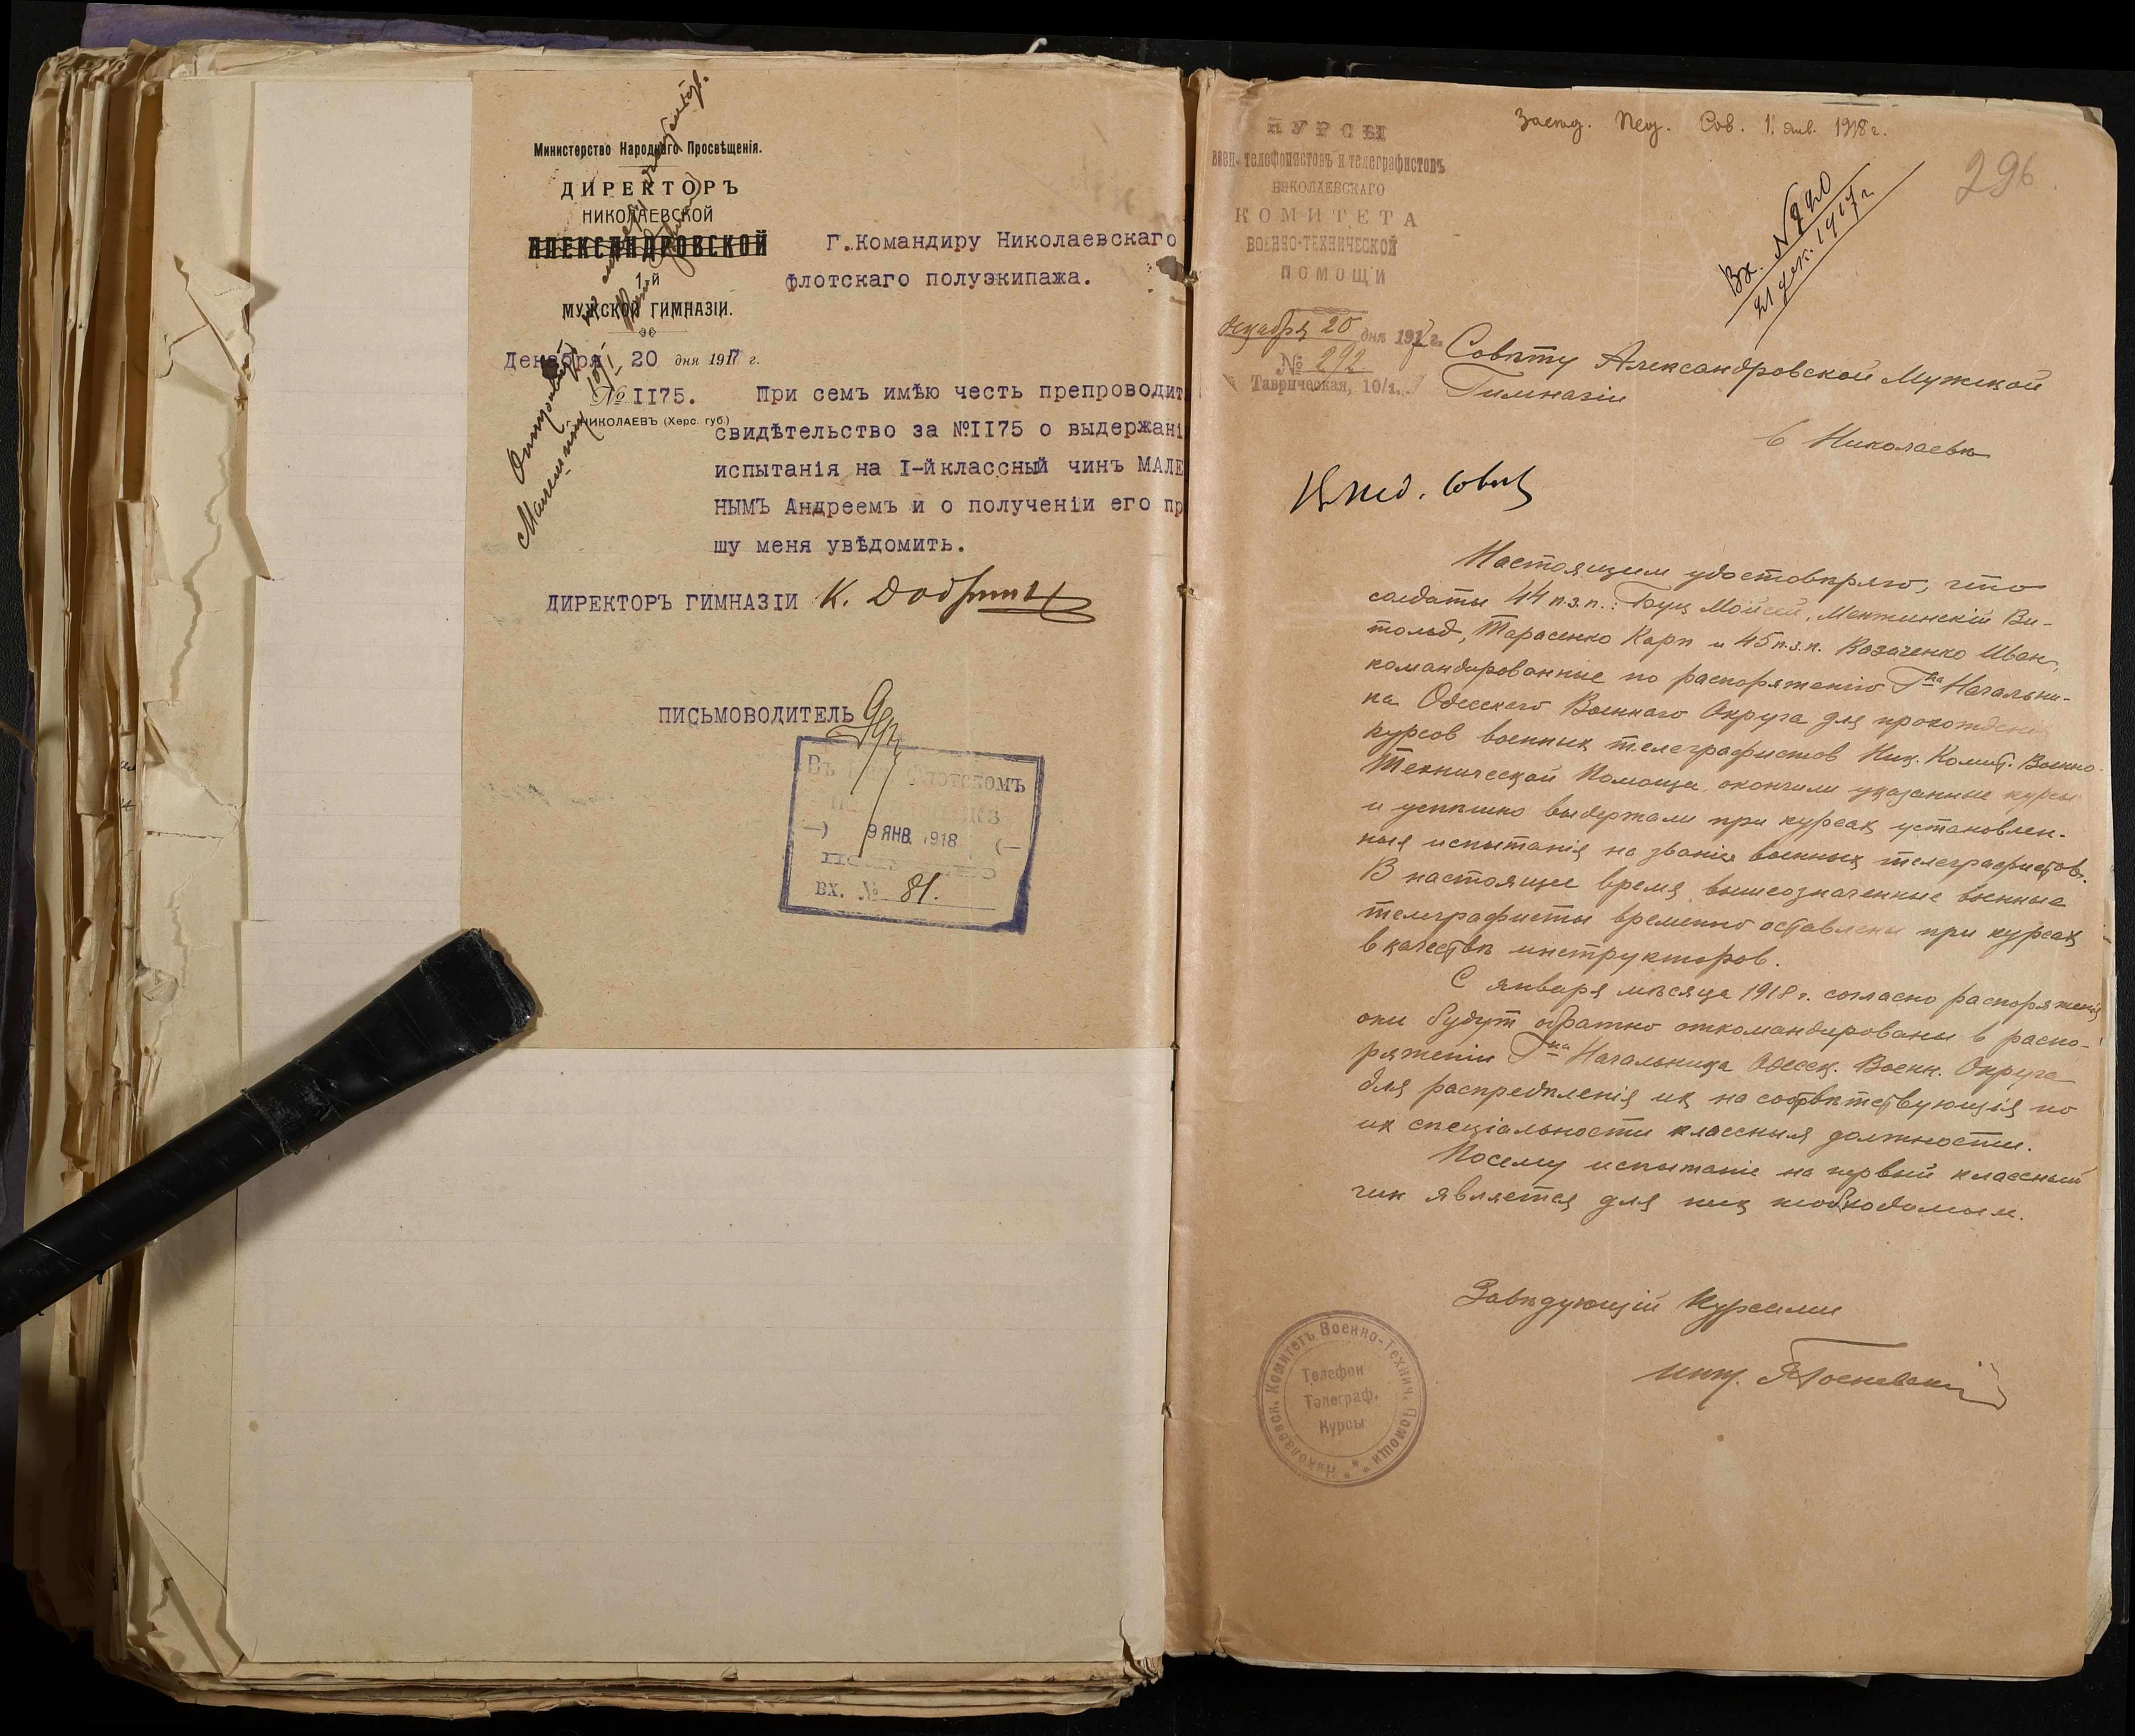 Министерство Народнаго Просвѣщенія.
ДИРЕКТОРЪ
НИКОЛАЕВСКОЙ
АЛЕКСАНДРОВСКОЙ
1-й
МУЖСКОЙ ГИМНАЗІИ.
Декабря 20 дня 1917 г.
№ II75.
г. НИКОЛАЕВЪ (Херс. губ.)
Г.Командиру Николаевскаго
флотскаго полуэкипажа.
При семъ имѣю честь препроводит
свидѣтельство за №II75 о выдержані
испытанія на I-й классный чинъ МАЛЕ
НЫМЪ Андреемъ и о полученіи его пр
шу меня увѣдомить.
ДИРЕКТОРЪ ГИМНАЗІИ
ПИСЬМОВОДИТЕЛЬ
Въ флотскомъ
9 ЯНВ. 1918
ВХ. № 81.
Засѣд. Пед. Сов. 1. Янв. 1918 г.
296
Вх. № 920
21 дек. 1917 г.
КУРСЫ
воен. телефонистовъ и телеграфистовъ
НИКОЛАЕВСКАГО
КОМИТЕТА
ВОЕННО-ТЕХНИЧЕСКОЙ
ПОМОЩИ
декабря 20 дня 1917 г.
№ 292
Таврическая, 10/1.
Совѣту Александровской Мужской
Гимназіи
в Николаевѣ
В пед. совѣт
Настоящим удостовѣряю, что
солдаты 44 п.з.п.: Буц Мойсей, Ментинскій Ви-
тольд, Тарасенко Карп и 45 п.з.п. Казаченко Иван,
командированные по распоряженію Г-на Начальни-
ка Одесскаго Военнаго Округа для прохожденія
курсов военных телеграфистов Ник. Комит. Военно-
Технической Помощи, окончили указанные курсы
и успѣшно выдержали при курсах установлен-
ныя испытанія на званіе военных телеграфистов.
В настоящее время вышеозначенные военные
телеграфисты временно оставлены при курсах
в качествѣ инструкторов.
С января мѣсяца 1918 г. согласно распоряженія
они будут обратно откомандированы в распо-
ряженіи Г-на Начальника Одесск. Военн. Округа
для распредѣленія их на соотвѣтствующія по
их спеціальности классныя должности.
Посему испытаніе на первый классный
чин является для них необходимым.
Завѣдующій Курсами
инж.
Николаевск. Комитетъ Военно-Технич. Помощи
Телефон
Телеграф.
Курсы